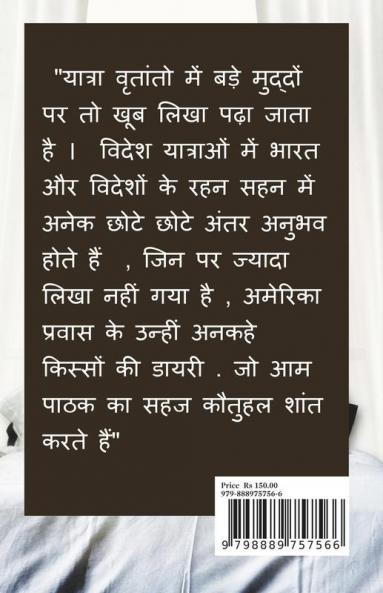 "यात्रा वृतांतो में बड़े मुद्दों
पर तो खूब लिखा पढ़ा जाता
है । विदेश यात्राओं में भारत
और विदेशों के रहन सहन में
अनेक छोटे छोटे अंतर अनुभव
होते हैं , जिन पर ज्यादा
लिखा नहीं गया है , अमेरिका
प्रवास के उन्हीं अनकहे
किस्सों की डायरी . जो आम
पाठक का सहज कौतुहल शांत
करते हैं"
Price Rs 150.00
979-888975756-6
9 798889 757566